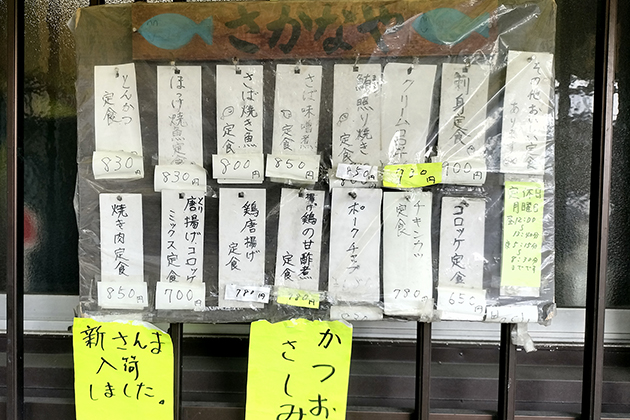 さかなや
とんかつ定食
830
ほっけ焼魚定食
830円
さば焼き魚定食
800円
さば味噌煮定食
850円
鰤照り焼き定食
850円
クリームコロッケ
刺身定食
900円
その他おいしい定食あります
焼き肉定食
850円
唐揚げコロッケミックス定食
700円
鶏唐揚げ定食
780円
揚げ鶏の甘酢煮定食
780円
ポークチャップ
チキンカツ定食
780円
コロッケ定食
650円
定休日
月曜日
新さんま
入荷
しました。
かつお
さしみ